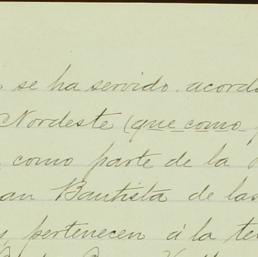 se ha servido acord
Nordeste (que como
como parte de la
an Bautista de las
pertenecen á la te